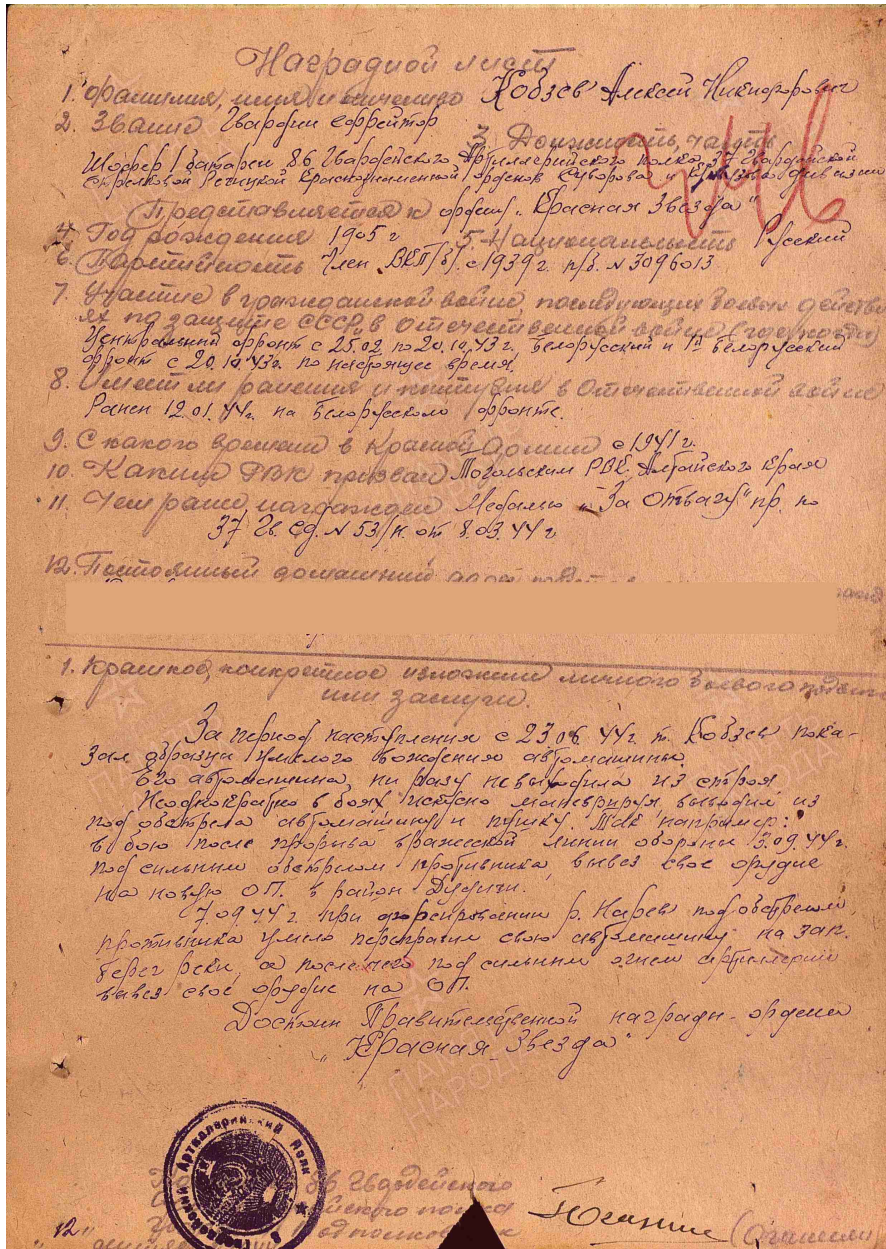 Наградной лист
1. Фамилия, имя и отчество Кобзев Алексей Никифорович
2. Звание Гвардии ефрейтор
3. Должность, часть
Шофер 1 батареи 86 Гвардейского Артиллерийского полка, 37 Гвардейской
Стрелковой Речицкой Краснознаменной орденов Суворова и дивизии
Представляется к ордену "Красная Звезда"
4. Год рождения 1905 г 5. Национальность Русский
6. Партийность Член ВКП/б/. с 1939 г. п/б. N 3096013
7. Участие в гражданской войне, последующих боевых действи
ях по защите СССР, в отечественной войне (где, когда)
Центральный фронт с 25.02 по 20.10.43 г. Белорусский и 1й Белорусский
фронт с 20.10.43г. по настоящее время.
8. Имеет ли ранения и контузии в Отечественной войне
Ранен 12.01.44г. на Белорусском фронте.
9. С какого времени в Красной Армии с 1941 г.
10. Каким РВК призван Тогольским РВК, Алтайского края
11. Чем ранее награжден Медалью "За Отвагу" пр. по
37 Гв. сд. N 53/н. от 8.03.44 г
12. Постоянный домашний адрес
1. Краткое, конкретное изложение личного боевого подвига
или заслуги.
За период наступления с 23.06.44 г. т. Кобзев пока-
зал образцы умелого вождения автомашины.
Его автомашина ни разу не выходила из строя.
Неоднократно в боях искусно маневрируя, выводил из
под обстрела автомашину и пушку. Так например:
в бою после прорыва вражеской линии обороны 3.09.44г.
под сильным обстрелом противника, вывез свое орудие
на новую ОП. в район
7.09.44 г. при форсировании р. Нарев под обстрелом
противника умело переправил свою автомашину на зап.
берег реки, а после чего под сильным огнем артиллерии
вывез свое орудие на ОП.
Достоин Правительственной награды - ордена
"Красная Звезда"
Гвардейский Артиллерийский Полк
86 Гвардейского
подполковник
"12"